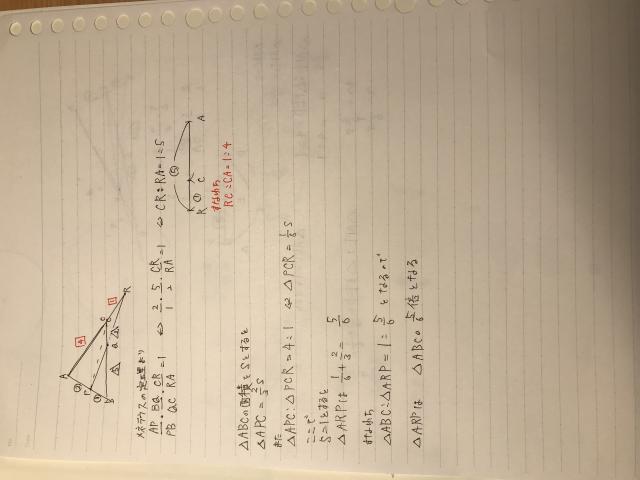 メネラウスの定理より
AP/PB・BQ/QC・CR/RA=1 ⇔ 2/1・5/2・CR/RA=1 ⇔ CR:RA=1:5
R ① C ⑤ A
すなわち
RC:CA=1:4
△ABCの面積をSとすると
△APC=2/3S
また
△APC:△PCR=4:1 ⇔ △PCR=1/6S
ここで
S=1とすると
△ARPは 1/6+2/3=5/6
すなわち
△ABC:△ARP=1:5/6 となるので
△ARPは △ABCの5/6倍となる